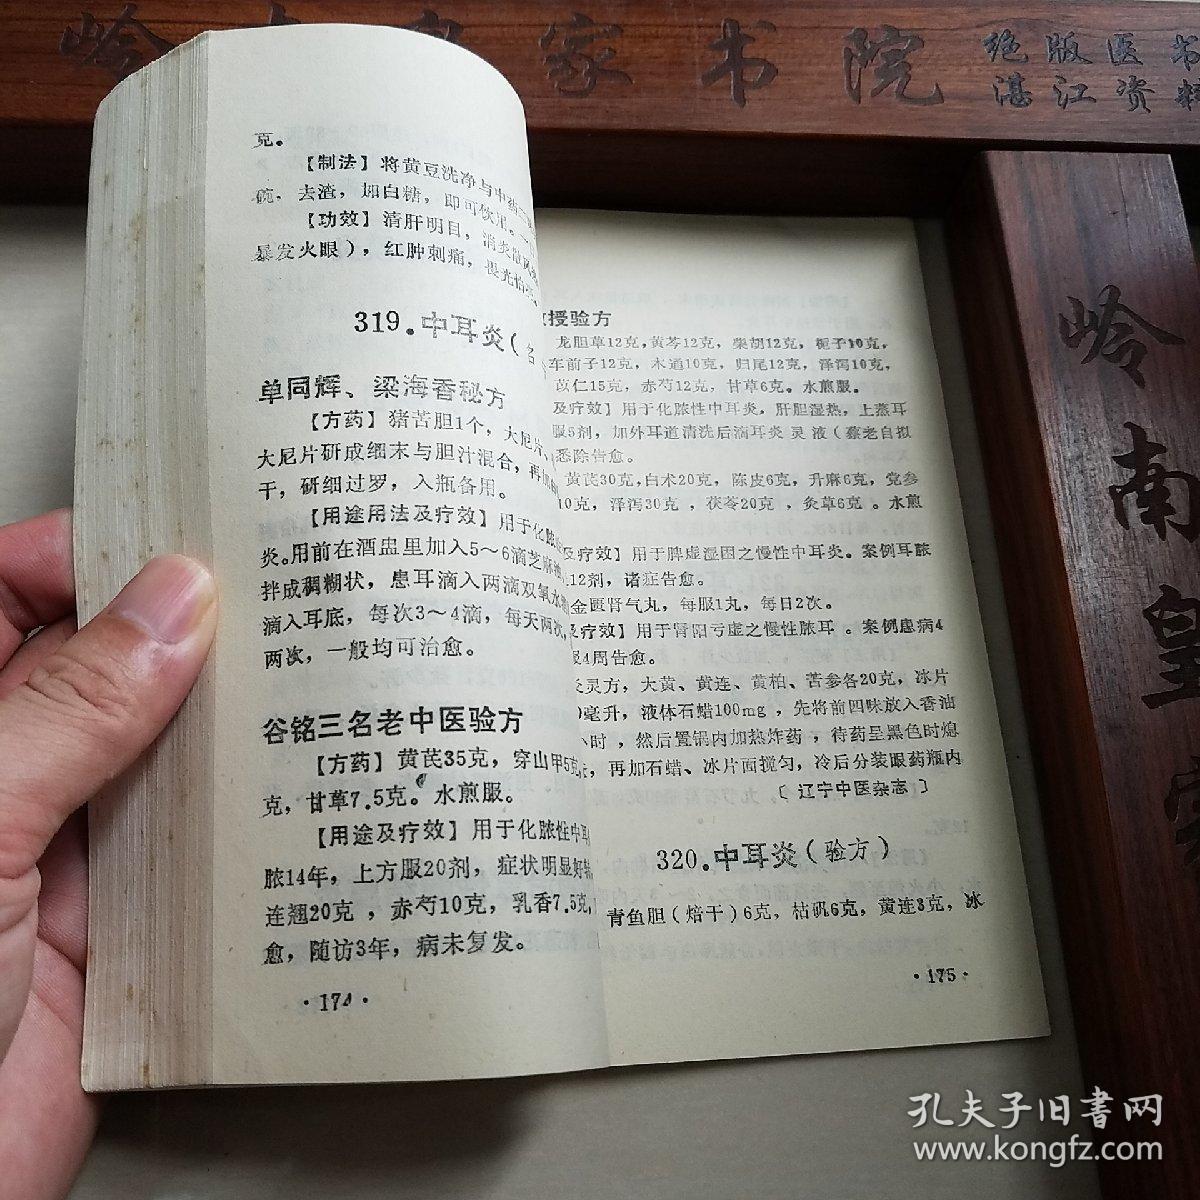 家书院
绝版医书
湛江资料
岭南皇家
克。
【制法】将黄豆洗净与中药
碗,去渣,加白糖,即可饮用。
【功效】清肝明目,消炎散风
暴发火眼),红肿刺痛,畏光怕
319.中耳炎(
单同辉、梁海香秘方
【方药】猪苦胆1个,大尼片
大尼片研成细末与胆汁混合,再
干,研细过罗,入瓶备用。
【用途用法及疗效】用于化脓
炎。用前在酒盅里加入5~6滴芝麻
拌成稠糊状,患耳滴入两滴双氧水
滴入耳底,每次3~4滴,每天两次,
两次,一般均可治愈。
谷铭三名老中医验方
【方药】黄芪35克,穿山甲5克,
克,甘草7.5克。水煎服。
【用途及疗效】用于化脓性中耳
脓14年,上方服20剂,症状明显好转
连翘20克,赤芍10克,乳香7.5克,
愈,随访3年,病未复发。
·174·
授验方
龙胆草12克,黄芩12克,柴胡12克,栀子10克,
车前子12克,木通10克,归尾12克,泽泻10克,
苡仁15克,赤芍12克,甘草6克。水煎服。
及疗效】用于化脓性中耳炎,肝胆湿热,上蒸耳
服5剂,加外耳道清洗后滴耳炎灵液(蔡老自拟
悉除告愈。
黄芪30克,白术20克,陈皮6克,升麻6克,党参
10克,泽泻30克,茯苓20克,炙草6克。水煎
及疗效】用于脾虚湿困之慢性中耳炎。案例耳脓
12剂,诸症告愈。
金匮肾气丸,每服1丸,每日2次。
及疗效】用于肾阳亏虚之慢性脓耳。案例患病4
服4周告愈。
炎灵方,大黄、黄连、黄柏、苦参各20克,冰片
毫升,液体石蜡100mg,先将前四味放入香油
小时,然后置锅内加热炸药,待药呈黑色时熄
,再加石蜡、冰片面搅匀,冷后分装眼药瓶内
〔辽宁中医杂志〕
320.中耳炎(验方)
青鱼胆(焙干)6克,枯矾6克,黄连3克,冰
·175·
孔夫子旧书网
www.kongfz.com